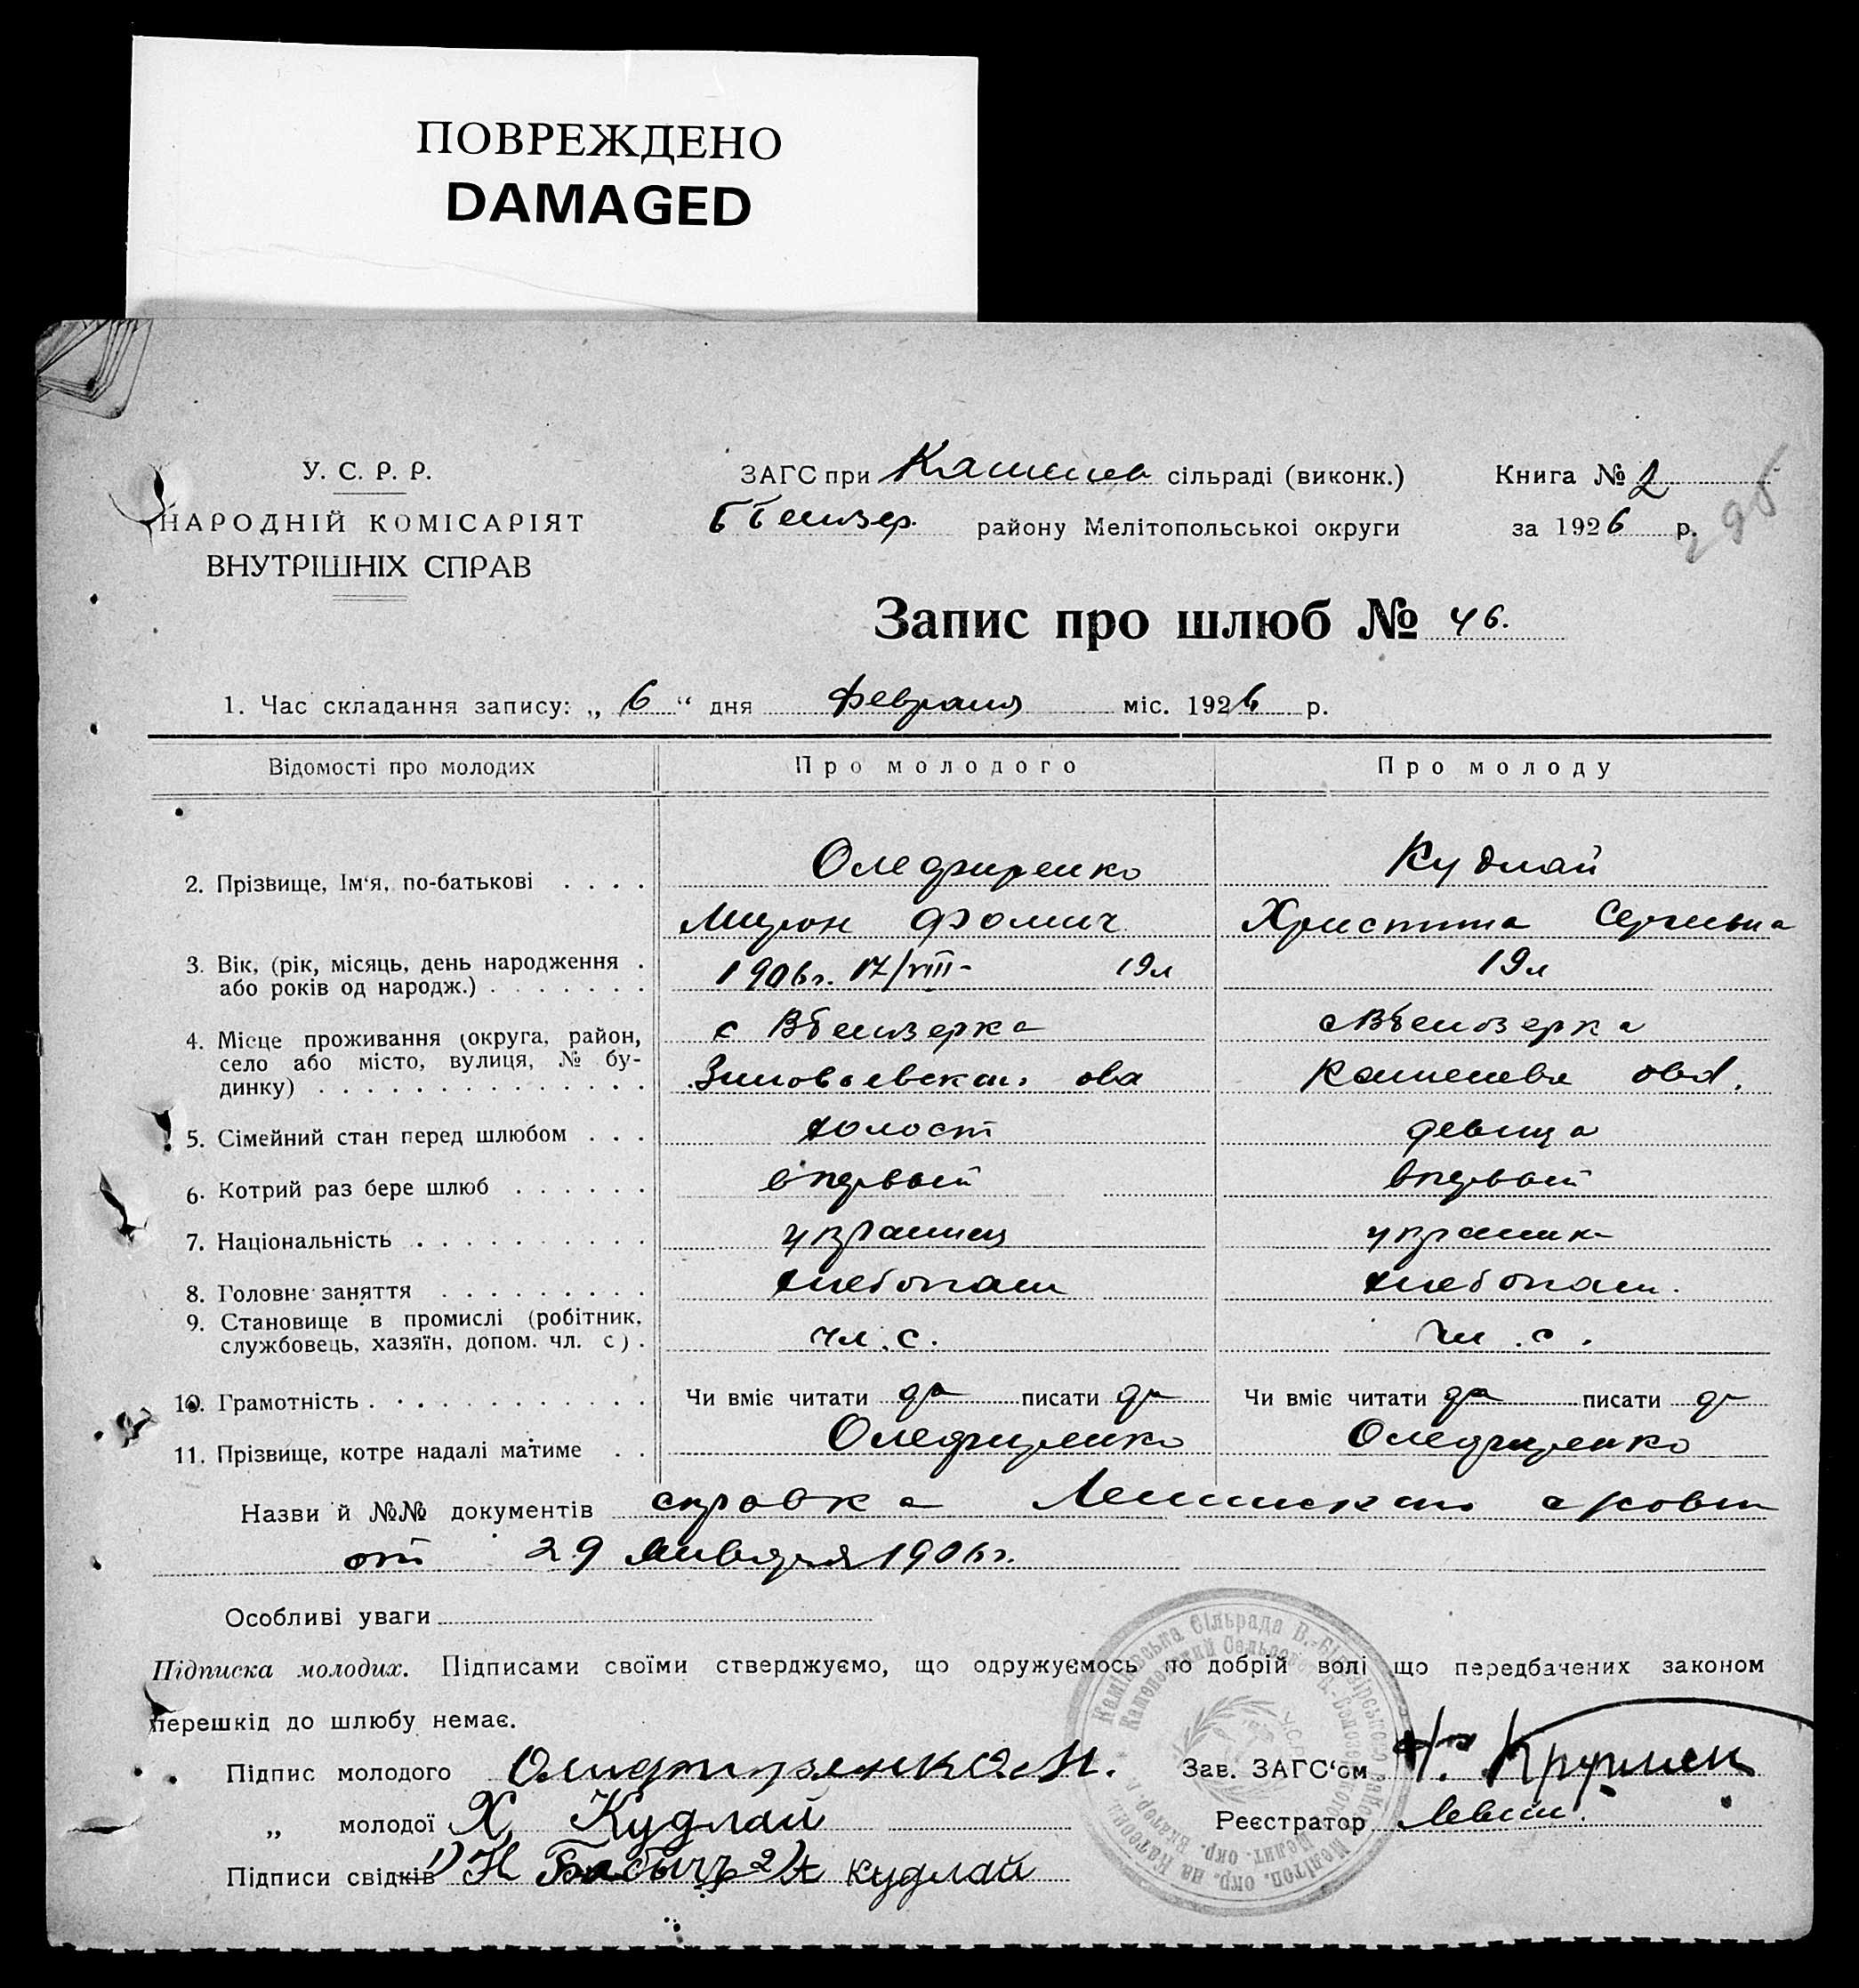 ПОВРЕЖДЕНО
DAMAGED
У. С. Р. Р.
НАРОДНІЙ КОМІСАРІЯТ
ВНУТРІШНІХ СПРАВ
ЗАГС при сільраді (виконк.)
району Мелітопольської округи
Книга № 2
за 1926 р.
295
Запис про шлюб № 46.
1. Час складання запису: „ 6 “ дня февраля міс. 1926 р.
Відомості про молодих Про молодого Про молоду
2. Прізвище, Ім‘я, по-батькові . . . . Оледжиренко Кудлай
Мирон Фомич Христина Сергеевна
3. Вік, (рік, місяць, день народження . 1906г. 17/VIII- 19л 19л
або років од народж.) . . . . . . .
4. Місце проживання (округа, район, с Вбелозерка с Вбелозерка
село або місто, вулиця, № бу-
динку) . . . . . . . . . . . . . .
5. Сімейний стан перед шлюбом . . . холост девица
6. Котрий раз бере шлюб . . . . . . впервый впервый
7. Національність . . . . . . . . . . украинец украинк
8. Головне заняття . . . . . . . . . хлебопаш хлебопаш.
9. Становище в промислі (робітник,
службовець, хазяїн, допом. чл. с) . чл. с. чл. с.
10. Грамотність . . . . . . . . . . . . Чи вміє читати да писати да Чи вміє читати да писати да
11. Прізвище, котре надалі матиме . . Оледжиренко Оледжиренко
Назви й №№ документів справка
от 29 января 1906г.
Особливі уваги
Підписка молодих. Підписами своїми стверджуємо, що одружуємось по добрій волі що передбачених законом
перешкід до шлюбу немає.
Підпис молодого
„ молодої Х Кудлай
Підписи свідків 1) Н 2) А Кудлай
Зав. ЗАГС‘ом
Реєстратор Левин.
Камінівська Сільрада В.-Білозірського району Мелітоп. окр. на Катеринославщині